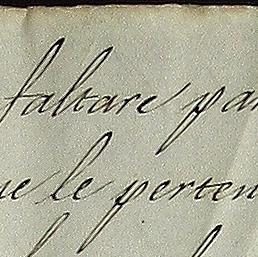 faltare par
ue le perten